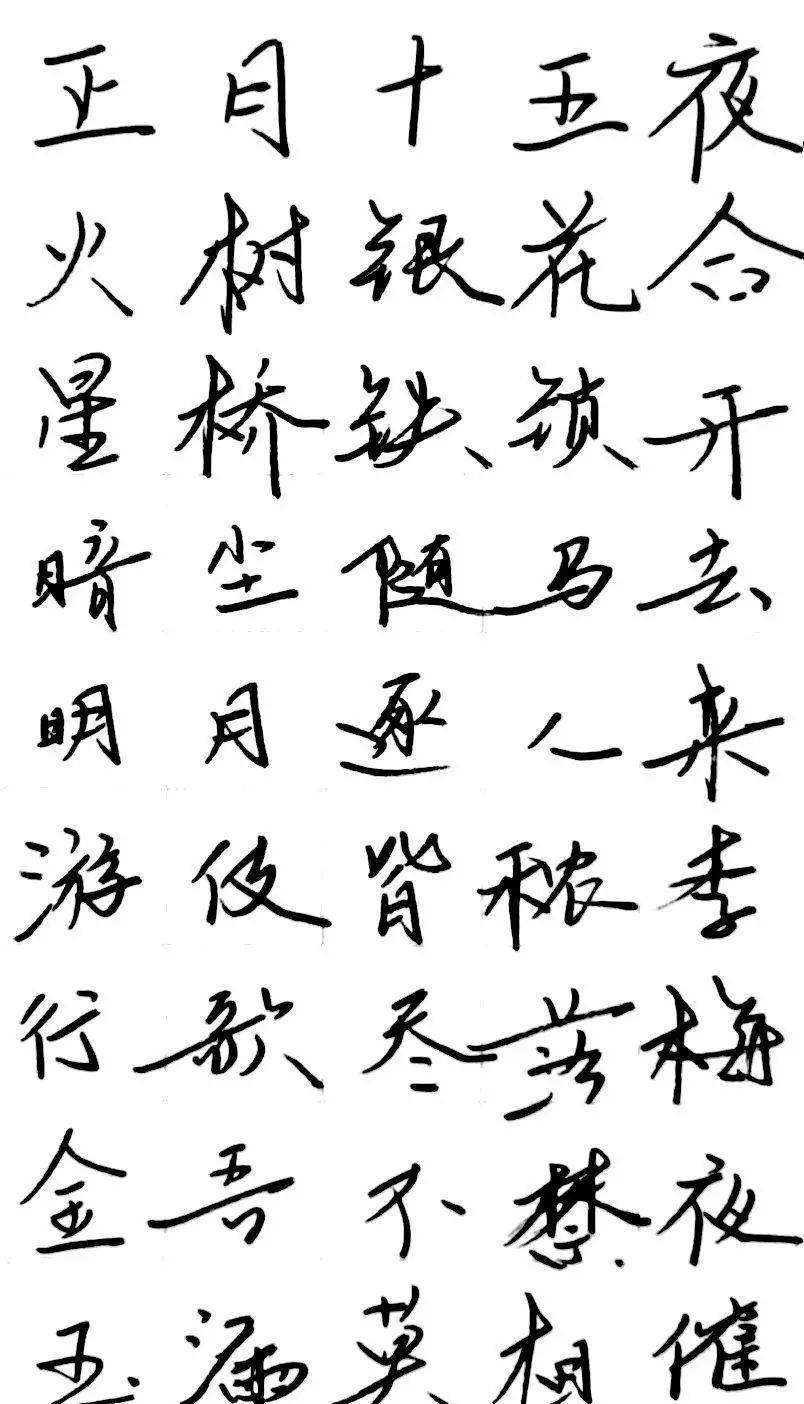 正月十五夜
火树银花合
星桥铁锁开
暗尘随马去
明月逐人来
游伎皆秾李
行歌尽落梅
金吾不禁夜
玉漏莫相催